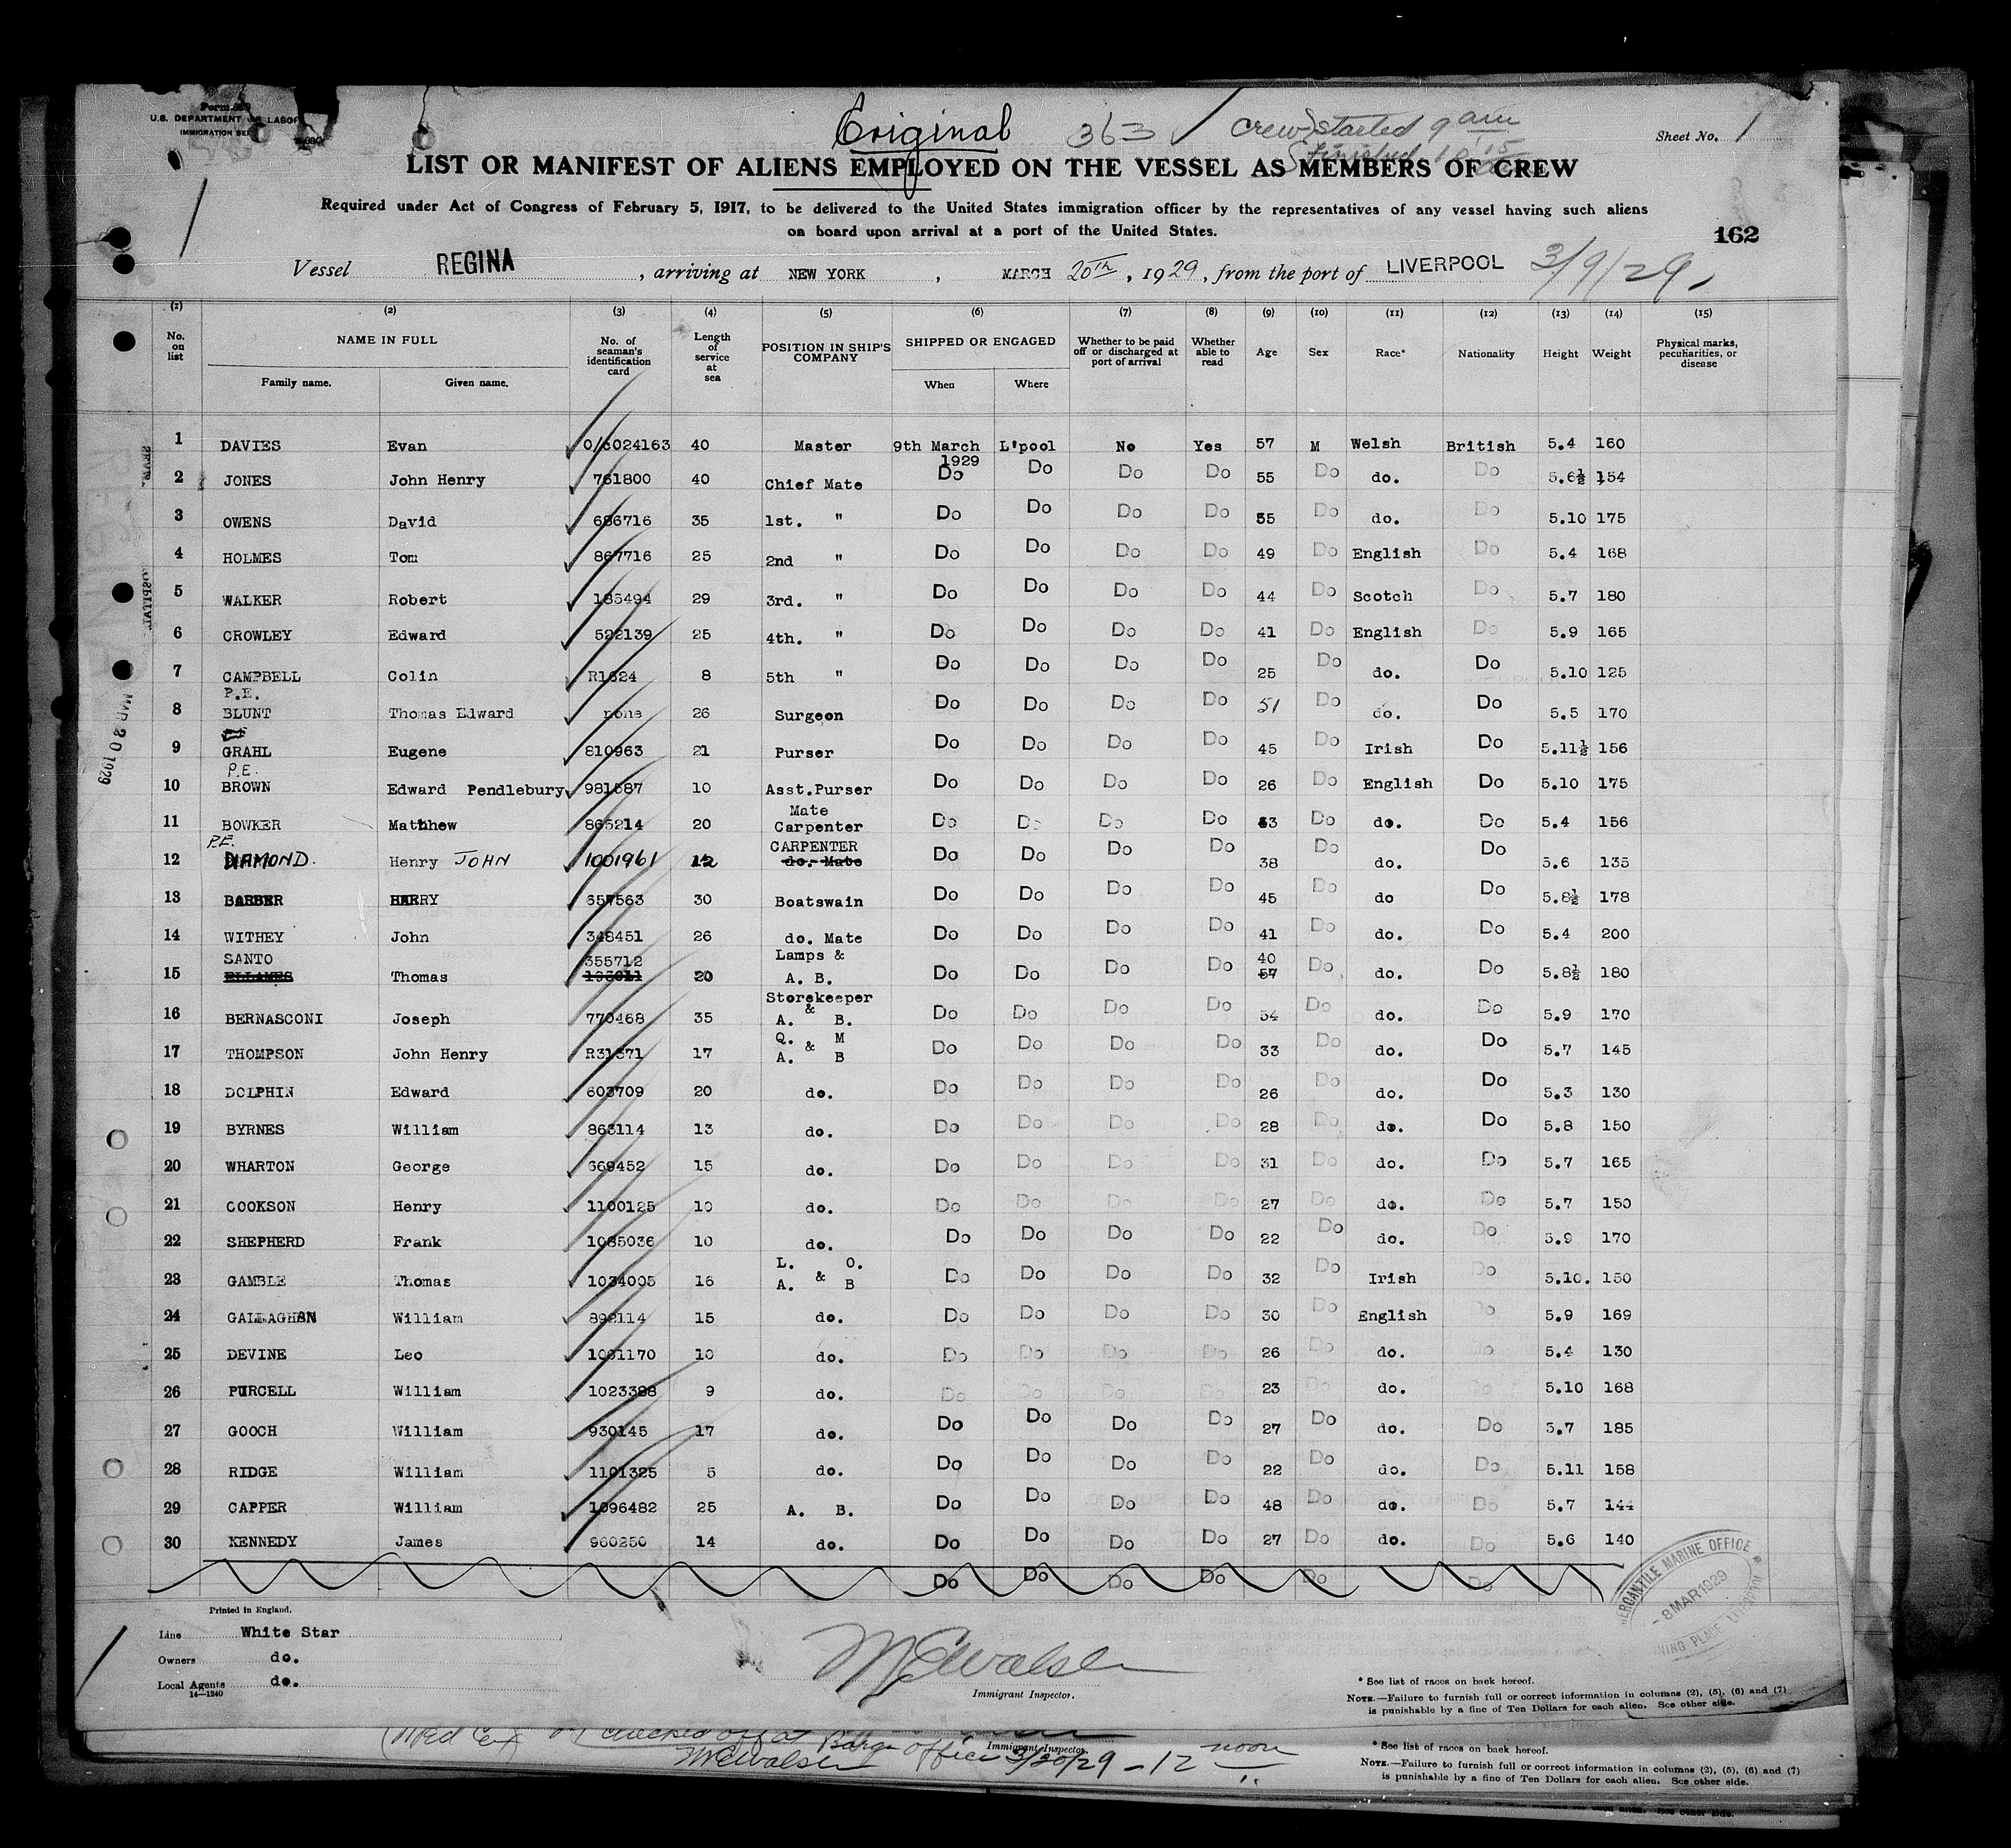 Form 689
U. S. DEPARTMENT OF LABOR
IMMIGRATION SER
Original 363 Crew started 9 am
finished 10 15
Sheet No. 1
LIST OR MANIFEST OF ALIENS EMPLOYED ON THE VESSEL AS MEMBERS OF CREW
Required under Act of Congress of February 5, 1917, to be delivered to the United States immigration officer by the representatives of any vessel having such aliens
on board upon arrival at a port of the United States.
162
Vessel REGINA, arriving at NEW YORK, MARCH 20th, 1929, from the port of LIVERPOOL 3/9/29.
(1) (2) (3) (4) (5) (6) (7) (8) (9) (10) (11) (12) (13) (14) (15)
No. on list NAME IN FULL Family name. Given name. No. of seaman's identification card Length of service at sea POSITION IN SHIP'S COMPANY SHIPPED OR ENGAGED When Where Whether to be paid off or discharged at port of arrival Whether able to read Age Sex Race* Nationality Height Weight Physical marks, peculiarities, or disease
1 DAVIES Evan 0/6024163 40 Master 9th March 1929 L'pool No Yes 57 M Welsh British 5.4 160
2 JONES John Henry 761800 40 Chief Mate Do Do Do Do 55 Do do. Do 5.6½ 154
3 OWENS David 686716 35 1st. " Do Do Do Do 55 Do do. Do 5.10 175
4 HOLMES Tom 867716 25 2nd " Do Do Do Do 49 Do English Do 5.4 168
5 WALKER Robert 185494 29 3rd. " Do Do Do Do 44 Do Scotch Do 5.7 180
6 CROWLEY Edward 522139 25 4th. " Do Do Do Do 41 Do English Do 5.9 165
7 CAMPBELL Colin R1624 8 5th " Do Do Do Do 25 Do do. Do 5.10 125
P.E.
8 BLUNT Thomas Edward none 26 Surgeon Do Do Do Do 51 Do do. Do 5.5 170
9 GRAHL Eugene 810963 21 Purser Do Do Do Do 45 Do Irish Do 5.11½ 156
P.E.
10 BROWN Edward Pendlebury 981587 10 Asst.Purser Do Do Do Do 26 Do English Do 5.10 175
11 BOWKER Matthew 865214 20 Mate Carpenter Do Do Do Do 63 Do do. Do 5.4 156
P.E.
12 DIAMOND. Henry JOHN 1001961 12 CARPENTER do. Mate Do Do Do Do 38 Do do. Do 5.6 135
13 BARBER HARRY 657563 30 Boatswain Do Do Do Do 45 Do do Do 5.8½ 178
14 WITHEY John 348451 26 do. Mate Do Do Do Do 41 Do do. Do 5.4 200
SANTO 355712 40
15 ELLAMES Thomas 20 Lamps & A. B. Do Do Do Do 57 Do do. Do 5.8½ 180
16 BERNASCONI Joseph 770468 35 Storekeeper & A. B. Do Do Do Do 54 Do do. Do 5.9 170
17 THOMPSON John Henry R31571 17 Q. M & A. B Do Do Do Do 33 Do do. Do 5.7 145
18 DOLPHIN Edward 603709 20 do. Do Do Do Do 26 Do do. Do 5.3 130
19 BYRNES William 863114 13 do. Do Do Do Do 28 Do do. Do 5.8 150
20 WHARTON George 669452 15 do. Do Do Do Do 31 Do do. Do 5.7 165
21 COOKSON Henry 1100125 10 do. Do Do Do Do 27 Do do. Do 5.7 150
22 SHEPHERD Frank 1085036 10 do. Do Do Do Do 22 Do do. Do 5.9 170
23 GAMBLE Thomas 1034005 16 L. O. & A. B Do Do Do Do 32 Do Irish Do 5.10. 150
24 GALLAGHAN William 892114 15 do. Do Do Do Do 30 Do English Do 5.9 169
25 DEVINE Leo 1061170 10 do. Do Do Do Do 26 Do do. Do 5.4 130
26 PURCELL William 1023388 9 do. Do Do Do Do 23 Do do. Do 5.10 168
27 GOOCH William 930145 17 do. Do Do Do Do 27 Do do. Do 5.7 185
28 RIDGE William 1101325 5 do. Do Do Do Do 22 Do do. Do 5.11 158
29 CAPPER William 1096482 25 A. B. Do Do Do Do 48 Do do. Do 5.7 144
30 KENNEDY James 960250 14 do. Do Do Do Do 27 Do do. Do 5.6 140
Do Do Do Do Do Do
MAR 20 1929
MERCANTILE MARINE OFFICE
- 8 MAR 1929
Printed in England.
Line White Star
Owners do.
Local Agents do.
14—1240
Immigrant Inspector.
* See list of races on back hereof.
NOTE.—Failure to furnish full or correct information in columns (2), (5), (6) and (7)
is punishable by a fine of Ten Dollars for each alien. See other side.
checked off at Barge office 3/20/29 - 12 noon
Immigrant Inspector.
* See list of races on back hereof.
NOTE.—Failure to furnish full or correct information in columns (2), (5), (6) and (7)
is punishable by a fine of Ten Dollars for each alien. See other side.